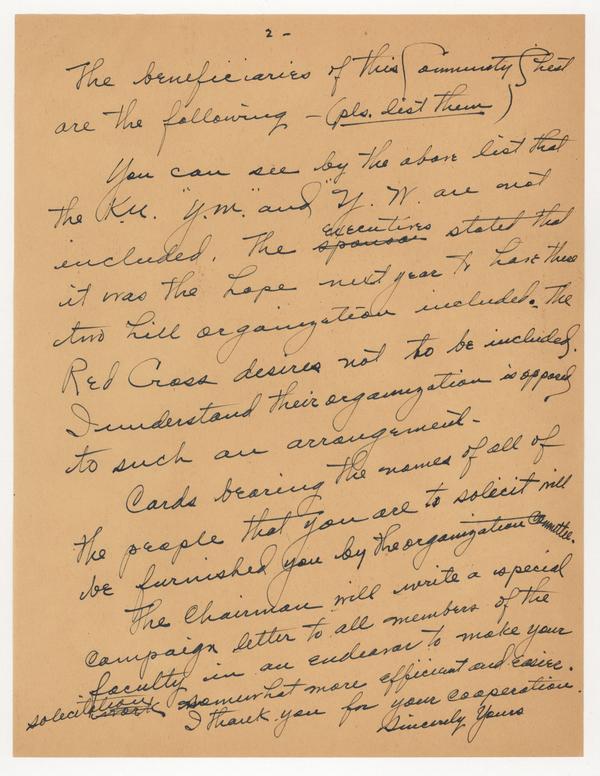 2 -
The beneficiaries of this Community Chest
are the following - (pls. list them)
You can see by the above list that
the K.U. "Y.M." and "Y.W. are not
included. The sponsor executives stated that
it was the hope next year to have these
two hill organization included. The
Red Cross desires not to be included.
I understand their organization is opposed
to such an arrangement.
Cards bearing the names of all of
the people that you are to solicit will
be furnished you by the organization committee.
The Chairman will write a special
campaign letter to all members of the
faculty in an endeavor to make your
solicitation work somewhat more efficient and easier.
I thank you for your cooperation.
Sincerely Yours